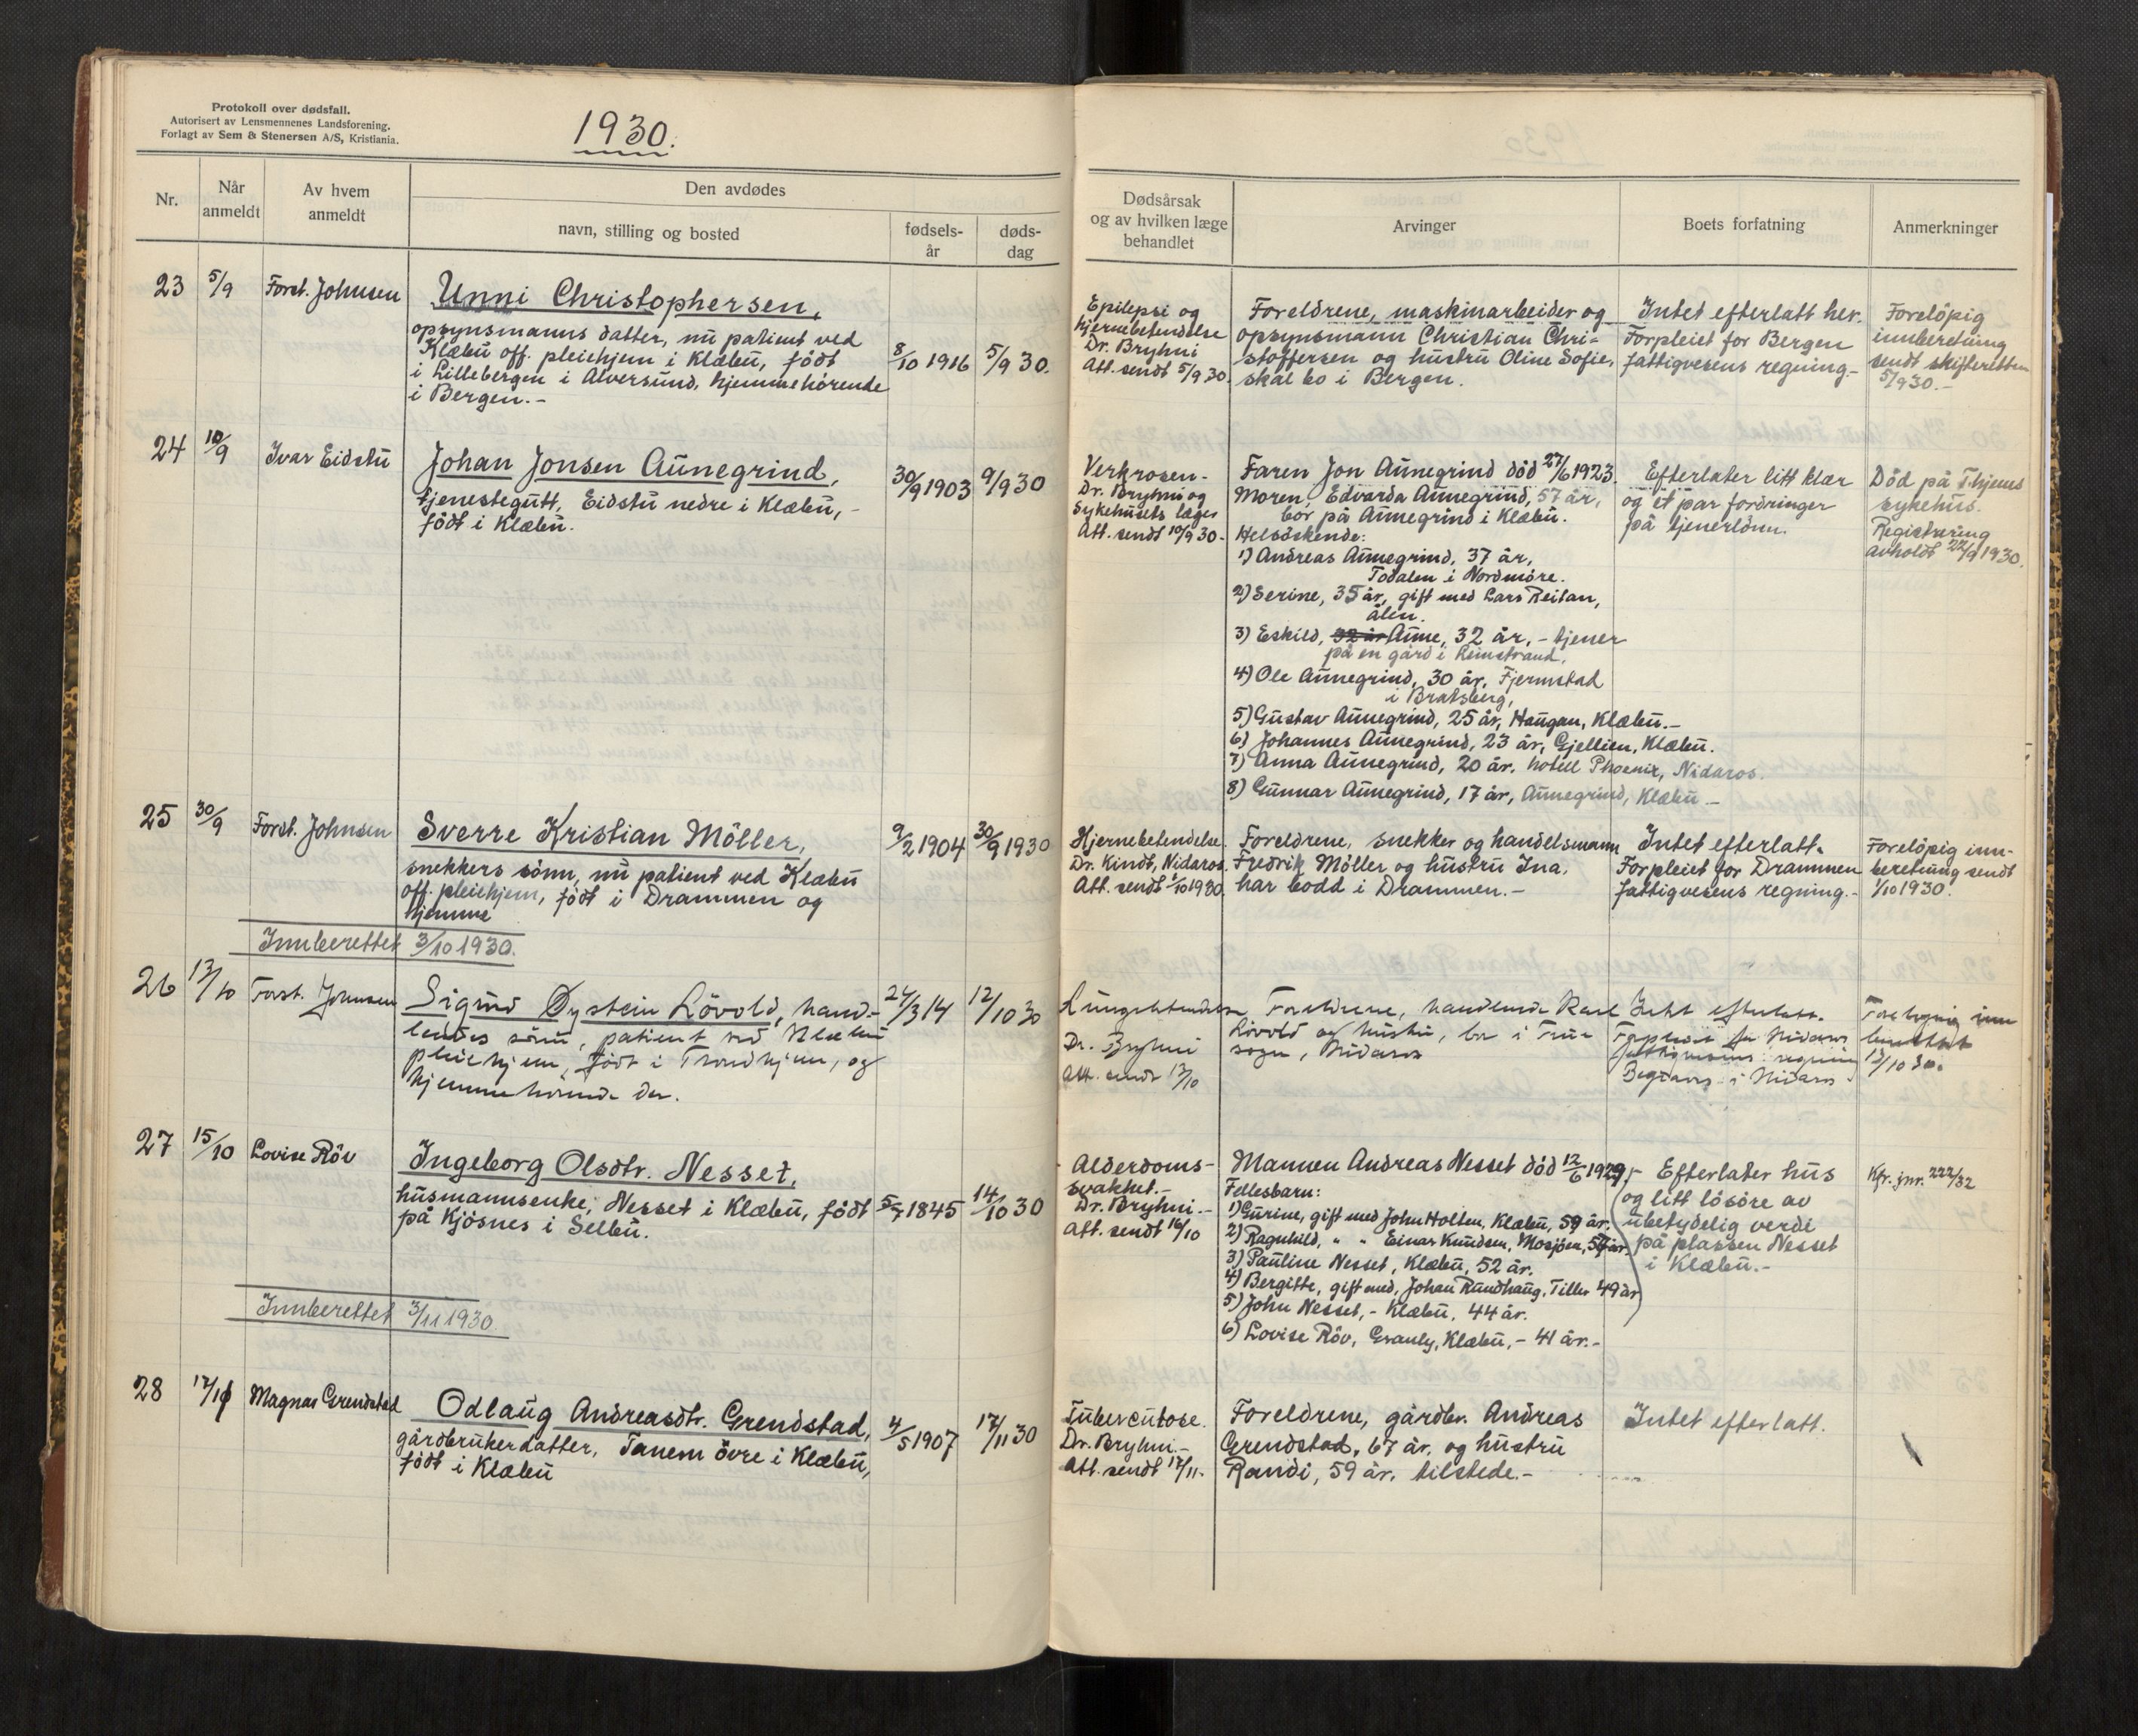 Protokoll over dødsfall.
Autorisert av Lensmennenes Landsforening.
Forlagt av Sem & Stenersen A/S, Kristiania.
1930.
Nr.
Når
anmeldt
Av hvem
anmeldt
Den avdødes
navn, stilling og bosted
fødsels-
år
døds-
dag
Dødsårsak
og av hvilken læge
behandlet
Arvinger
Boets forfatning
Anmerkninger
23
5/9
Forst. Johnsen
Unni Christophersen,
opsynsmanns datter, nu patient ved
Klæbu off. pleiehjem i Klæbu, födt
i Lillebergen i Alversund, hjemmehörende
i Bergen.-
8/10 1916
5/9 30.
Epilepsi og
hjernebetendelse
Dr. Bryhni
Att. sendt 5/9 30.
Foreldrene, maskinarbeider og
opsynsmann Christian Chri-
stoffersen og hustru Oline Sofie,
skal bo i Bergen.
Intet efterlatt her.
Forpleiet for Bergen
fattigvesens regning.-
Forelöpig
innberetning
sendt skifteretten
5/9 30.-
24
10/9
Ivar Eidstu
Johan Jonsen Aunegrind,
tjenestegutt, Eidstu nedre i Klæbu,-
födt i Klæbu.
30/9 1903
9/9 30
Verkrosen-
Dr. Bryhni og
Sykehusets læger
Att. sendt 10/9 30-
Faren Jon Aunegrind död 27/6 1923.
Moren, Edvarda Aunegrind, 57 år,
bor på Aunegrind i Klæbu.
Helsöskende:
1) Andreas Aunegrind, 37 år,
Todalen i Nordmöre.
2) Serine, 35 år, gift med Lars Reitan,
Ålen.
3) Eskild, 32 år Aune, 32 år, - tjener
på en gård i Leinstrand.
4) Ole Aunegrind, 30 år, Fjermstad
i Bratsberg,
5) Gustav Aunegrind, 25 år, Haugan, Klæbu.-
6) Johannes Aunegrind, 23 år, Gjellien, Klæbu.
7) Anna Aunegrind, 20 år. hotell Phoenix, Nidaros.
8) Gunnar Aunegrind, 17 år, Aunegrind, Klæbu -
Efterlater litt klær
og et par fordringer
på tjenerlönn.
Död på Thjems
sykehus.
Registrering
avholdt 22/9 1930.
25
30/9
Forst. Johnsen
Sverre Kristian Möller,
snekkers sönn, nu patient ved Klæbu
off. pleiehjem, födt i Drammen og
hjemme
9/2 1904
30/9 1930
Hjernebetendelse.
Dr. Kindt, Nidaros.
Att. sendt 1/10 1930.
Foreldrene, snekker og handelsmann
Fredrik Möller og hustru Ina,
har bodd i Drammen.-
Intet efterlatt.
Forpleiet for Drammen
fattigvesens regning.-
Forelöpig inn-
beretning sendt
1/10 1930.
Innberettet 3/10 1930.
26
13/10
Forst. Johnsen
Sigurd Oystein Lövold, hand-
lendes sönn, patient ved Klæbu
pleiehjem, födt i Trondhjem, og
hjemmehörende der.
24/3 14
12/10 30
Lungebetendelse
Dr. Bryhni
Att. sendt 13/10
Foreldrene, handlende Karl
Lövold og hustru, bor i Frue
sogn, Nidaros
Intet efterlatt.
Forpleiet for Nidaros
fattigvesens regning
Begraves i Nidaros
Forelöpig inn
13/10 30.
27
15/10
Lovise Röv
Ingeborg Olsdtr. Nesset,
husmannsenke, Nesset i Klæbu, födt
på Kjösnes i Selbu.
5/7 1845
14/10 30
Alderdoms-
svakhet.-
Dr. Bryhni.-
Att. sendt 16/10
Mannen Andreas Nesset död 12/6 1929,-
Fellesbarn:
1) Gurine, gift med John Holten, Klæbu, 59 år.
2) Ragnhild, " " Einar Knudsen, Mosjöen, 54 år.
3) Pauline Nesset, Klæbu, 52 år.
4) Bergitte, gift med, Johan Rundhaug, Tiller 49 år
5) John Nesset, - Klæbu, 44 år.
6) Lovise Röv, Granly, Klæbu, - 41 år.-
Efterlater hus
og litt lösöre av
ubetydelig verdi
på plassen Nesset
i Klæbu.-
Kfr. jnr. 222/32
Innberettet 3/11 1930.
28
17/11
Magnar Grendstad
Odlaug Andreasdtr. Grendstad,
gårdbrukerdatter, Tanem övre i Klæbu,
födt i Klæbu
4/5 1907
17/11 30
Tuberculose.
Dr. Bryhni.-
Att. sendt 17/11.
Foreldrene, gårdbr. Andreas
Grendstad, 67 år, og hustru
Randi, 59 år, tilstede.-
Intet efterlatt.